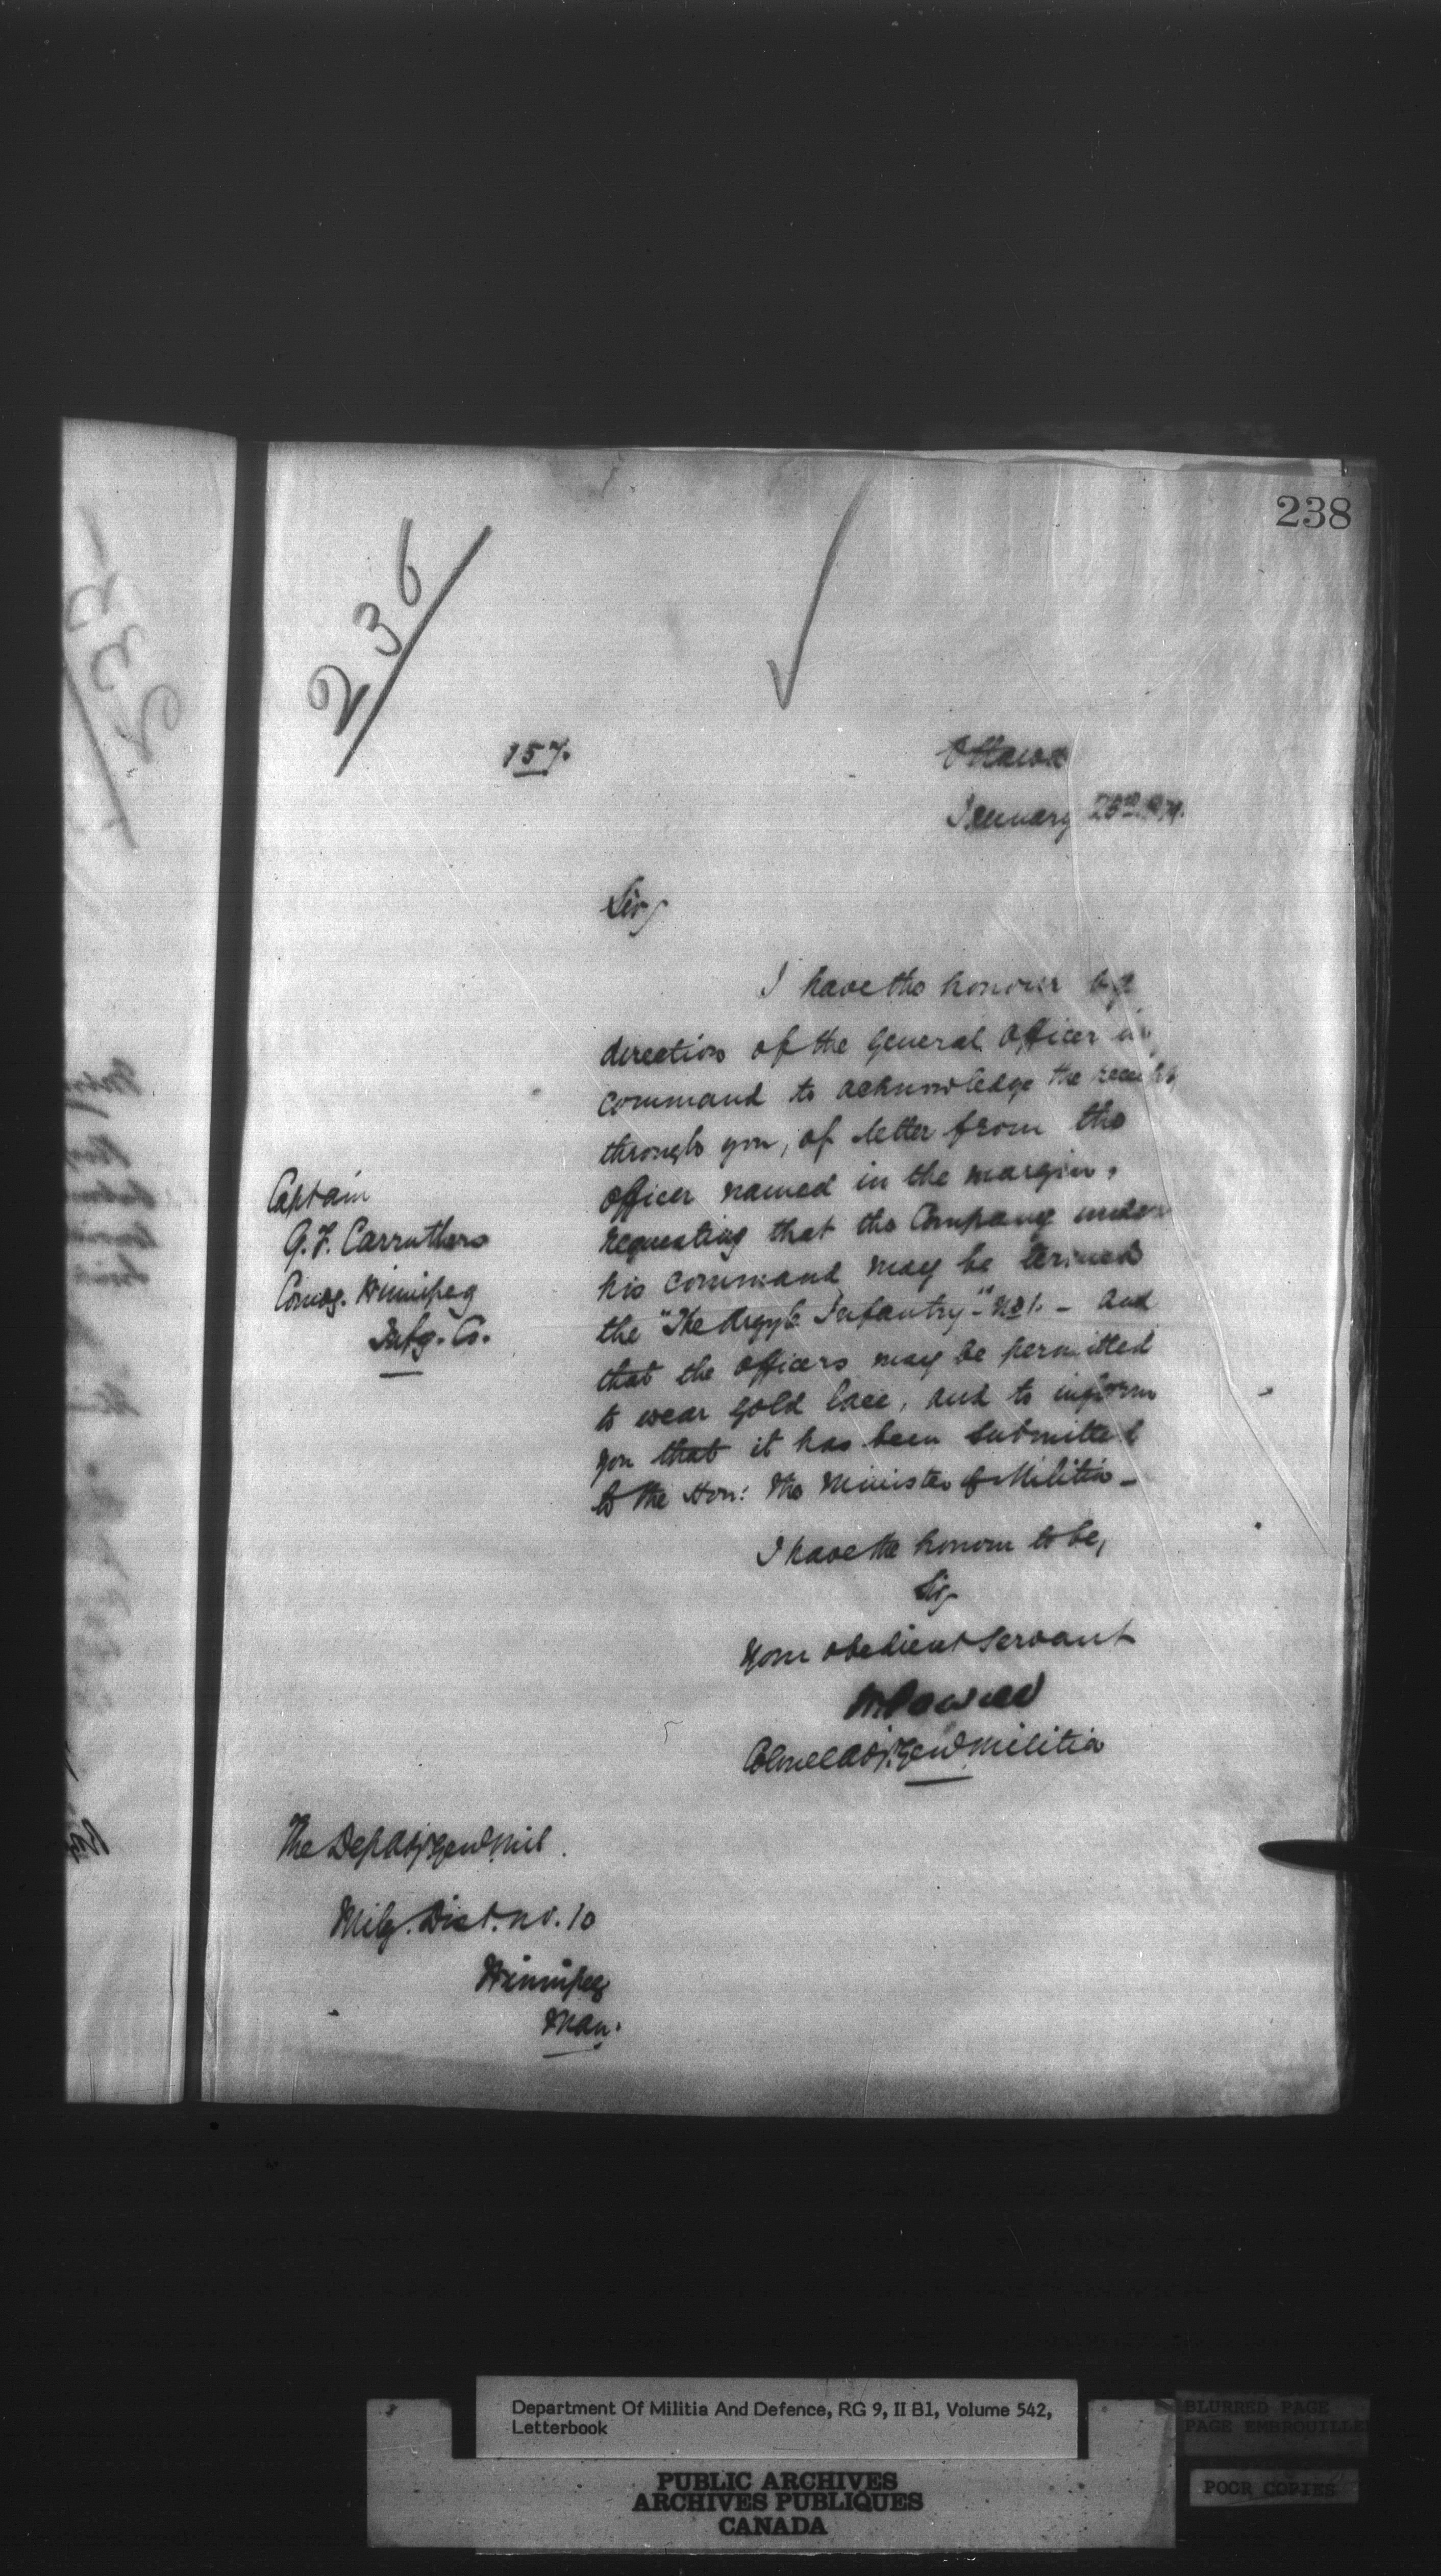 238
236
157.
Ottawa
January
Sir,
I have the honour by
direction of the General Officer in
command to acknowledge the receipt,
through you, of letter from the
officer named in the margin,
requesting that the Company under
his command may be termed
the "The Argyle Infantry"- No 1. - and
that the officers may be permitted
to wear gold lace, and to inform
you that it has been submitted
to the Hon: the Minister of Militia -
Captain
G. F. Carruthers
Comdg. Winnipeg
Infy. Co.
I have the honour to be,
Sir,
Your obedient servant
W. Powell
Colonel Adjt. Genl Militia
The Dep Adjt Genl Mil.
Mily. Dist. no. 10
Winnipeg
Man.
Department Of Militia And Defence, RG 9, II B1, Volume 542,
Letterbook
PUBLIC ARCHIVES
ARCHIVES PUBLIQUES
CANADA
BLURRED PAGE
PAGE EMBROUILLE
POOR COPIES